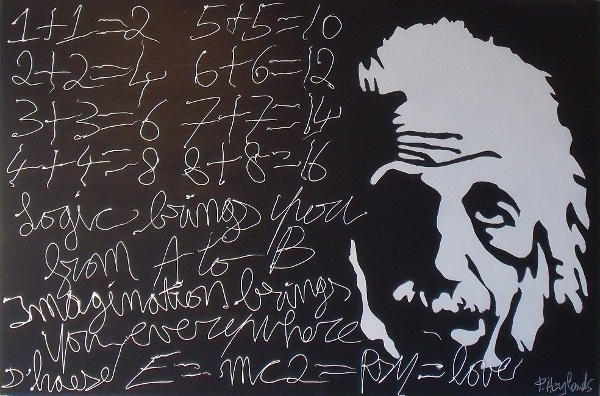 1+1=2 5+5=10
2+2=4 6+6=12
3+3=6 7+7=14
4+4=8 8+8=16
Logic brings you
from A to B
Imagination brings
you everywhere
D'haese E=mc2= =love
P. Heylands